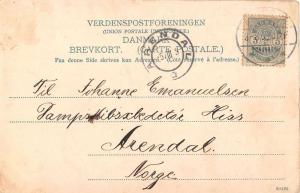 VERDENSPOSTFORENINGEN
(UNION POSTALE UNIVERSELLE)
DANMARK
BREVKORT. (CARTE POSTALE.)
Paa denne Side skrives kun Adressen. (Côté réservé à l'adresse.)
ARENDAL
Til Johanne Emanuelsen
Hias
Arendal
Norge